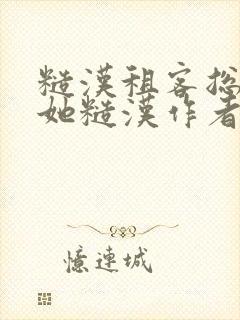 糙漢租客总
她糙漢作者
憶連城